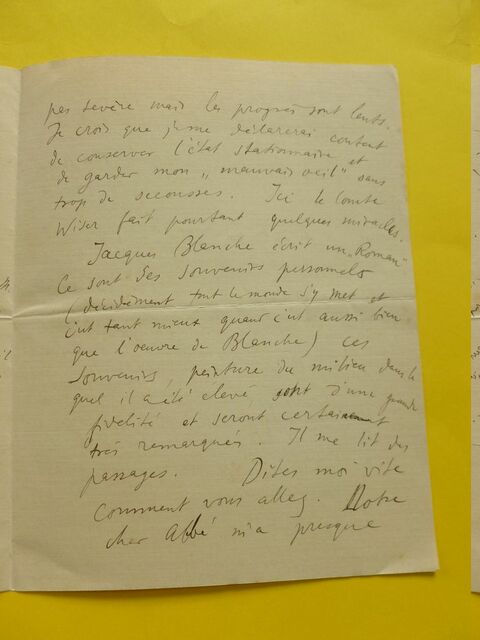 pas sevère mais les progrès sont lents.
Je crois que je me déclarerai content
de conserver l'état stationnaire et
de garder mon „mauvais oeil" sans
trop de secousses. Ici le Comte
Wiser fait pourtant quelques miracles.
Jacques Blanche écrit un „Roman"
Ce sont des souvenirs personnels
(décidément tout le monde s'y met et
c'est tant mieux quand c'est aussi bien
que l'oeuvre de Blanche) ces
souvenirs, peinture du milieu dans le
quel il a été elevé sont d'une grande
fidelité et seront certainement
très remarqués. Il me lit des
passages. Dites moi vite
comment vous allez. Notre
cher Abbé m'a presque